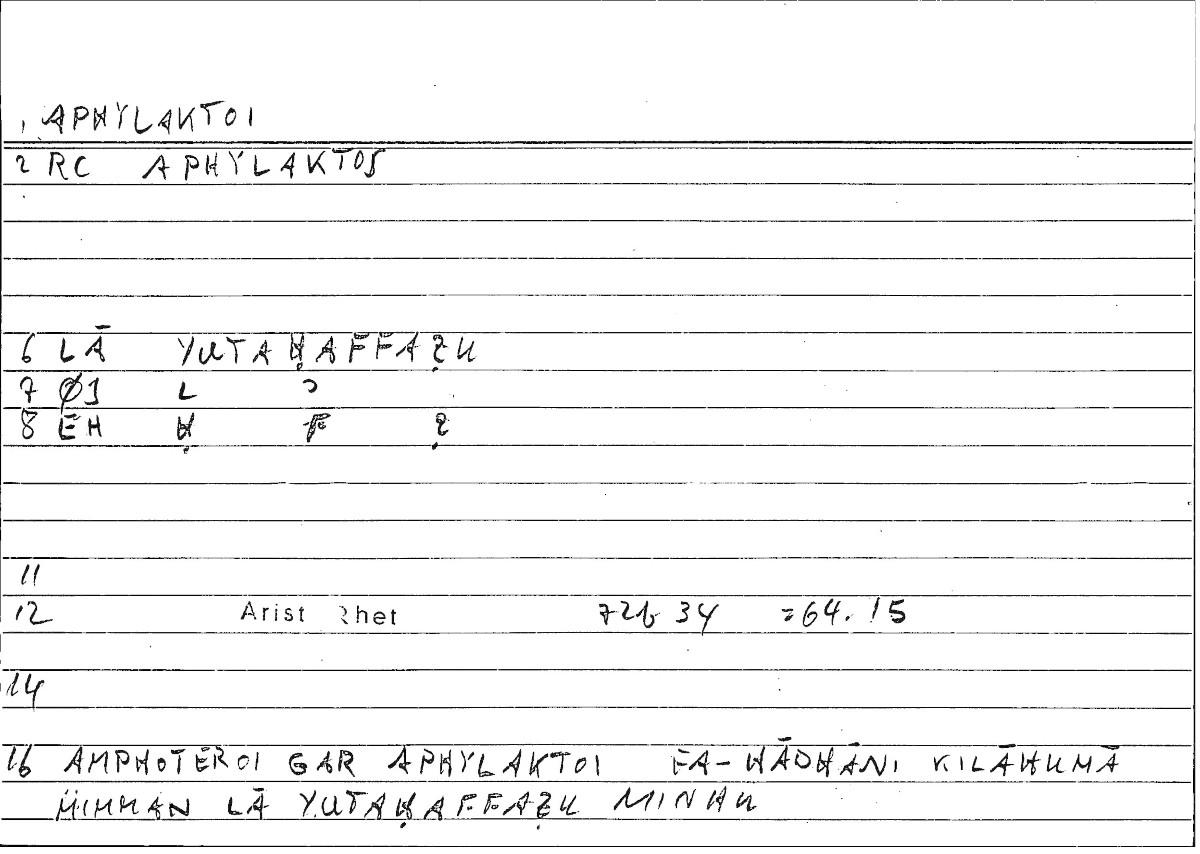 1 APHYLAKTOI
2 RC APHYLAKTOS
6 LĀ YUTAḤAFFAẒU
7 Ø1 L ɔ
8 EH Ḥ F Ẓ
11
12 Arist Rhet 72b 34 =64.15
14
16 AMPHOTEROI GAR APHYLAKTOI FA-HĀDHĀNI KILĀHUMĀ
MIMMAN LĀ YUTAḤAFFAẒU MINHU